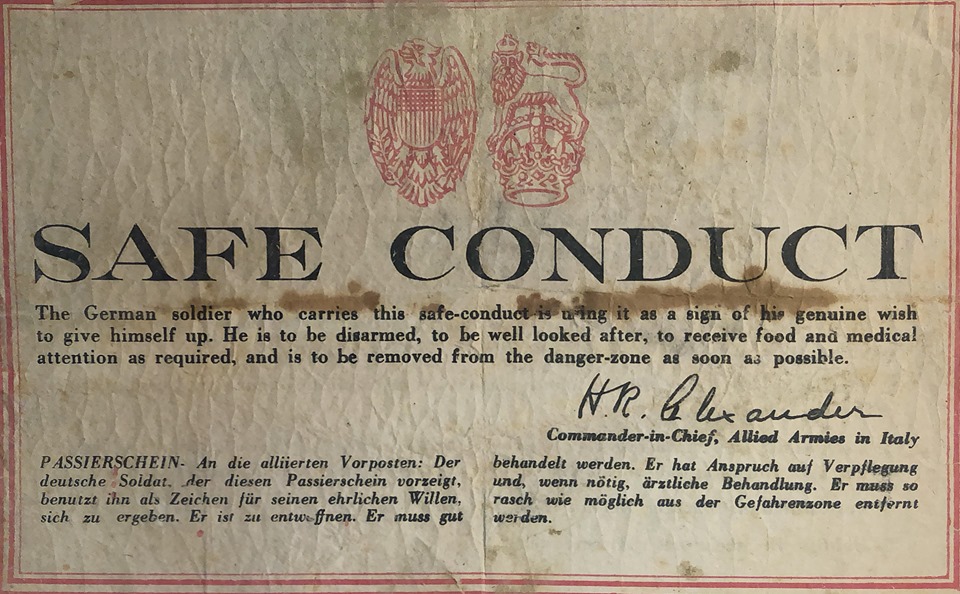 SAFE CONDUCT
The German soldier who carries this safe-conduct is using it as a sign of his genuine wish
to give himself up. He is to be disarmed, to be well looked after, to receive food and medical
attention as required, and is to be removed from the danger-zone as soon as possible.
H.R. Alexander
Commander-in-Chief, Allied Armies in Italy
PASSIERSCHEIN- An die alliierten Vorposten: Der
deutsche Soldat, der diesen Passierschein vorzeigt,
benutzt ihn als Zeichen für seinen ehrlichen Willen,
sich zu ergeben. Er ist zu entwaffnen. Er muss gut
behandelt werden. Er hat Anspruch auf Verpflegung
und, wenn nötig, ärztliche Behandlung. Er muss so
rasch wie möglich aus der Gefahrenzone entfernt
werden.